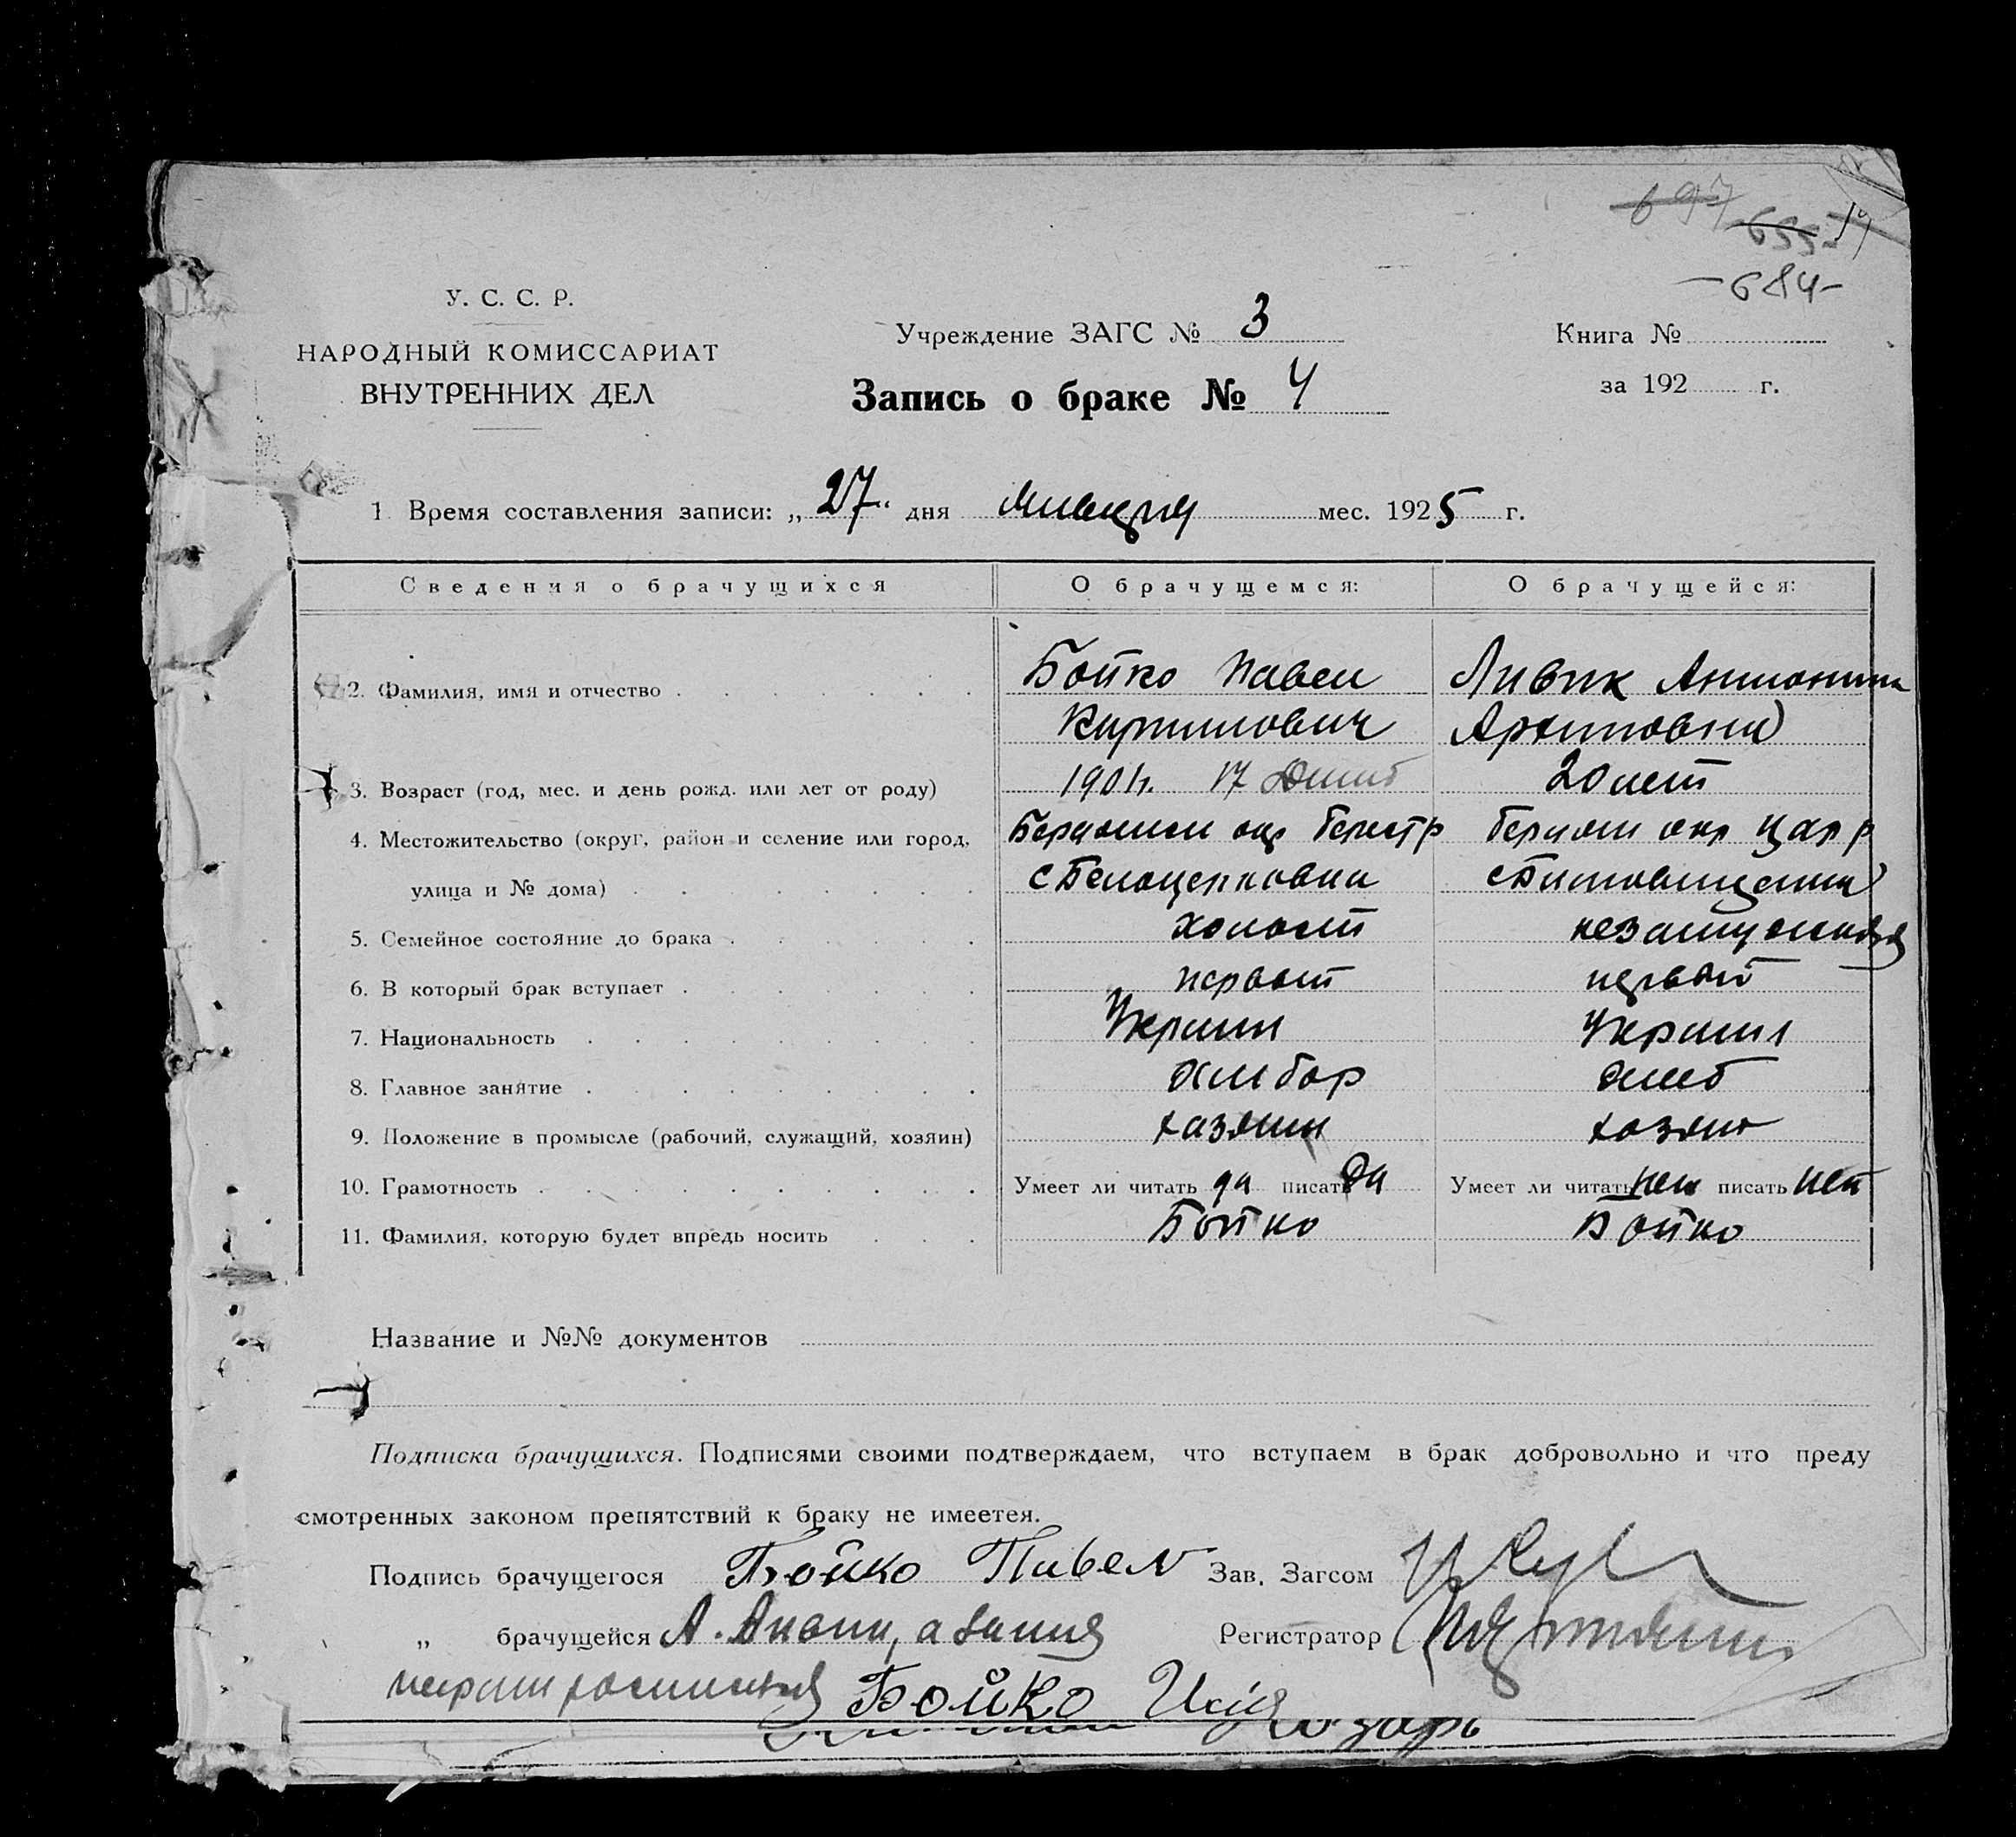 697 655
-684-
У. С. С. Р.
НАРОДНЫЙ КОМИССАРИАТ
ВНУТРЕННИХ ДЕЛ
Учреждение ЗАГС № 3
Книга №
Запись о браке № 4
за 192 г.
1 Время составления записи: „ 27 " дня января мес. 1925 г.
Сведения о брачущихся О брачущемся: О брачущейся:
2. Фамилия, имя и отчество Бойко Павел Ливик Антонина
Кирилович Архиповна
3. Возраст (год, мес. и день рожд. или лет от роду) 1901г. 17 20 лет
4. Местожительство (округ, район и селение или город, окр
улица и № дома) с Белоцерковка с
5. Семейное состояние до брака холост незамужняя
6. В который брак вступает первый первый
7. Национальность Украин Украин
8. Главное занятие Хлибор
9. Положение в промысле (рабочий, служащий, хозяин) хазяин
10. Грамотность Умеет ли читать да писать да Умеет ли читать нет писать нет
11. Фамилия, которую будет впредь носить Бойко Бойко
Название и №№ документов
Подписка брачущихся. Подписями своими подтверждаем, что вступаем в брак добровольно и что преду
смотренных законом препятствий к браку не имеетея.
Подпись брачущегося Бойко Павел Зав. Загсом
„ брачущейся А. Регистратор
Бойко